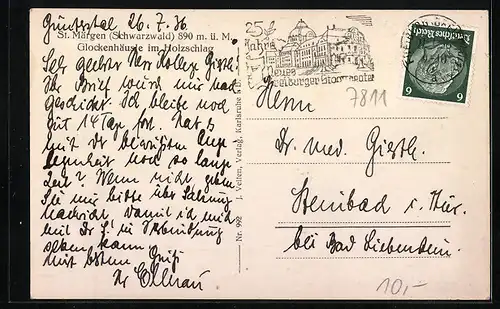 Günterstal 26.7.36
St. Märgen (Schwarzwald) 890 m. ü. M.
Glockenhäusle im Holzschlag
Sehr geehrter Herr Kollege
Ihr Brief wurde mir nach
geschickt. Ich bleibe noch
gut 14 Tage fort. Hat es
mit der bewußten Ange
legenheit noch so lange
Zeit? Wenn nicht geben
Sie mir bitte über
Nachricht, damit ich mich
mit Dr. in Verbindung
setzen kann.
mit bestem Gruß
Ihr
Nr. 992 J. Velten, Verlag, Karlsruhe
25
Jahre
Neues
Freiburger Stadttheater
Deutsches Reich
6 6
7811
Herrn
Dr. med.
Steinbad i. Thür.
bei Bad Liebenstein.
10,-